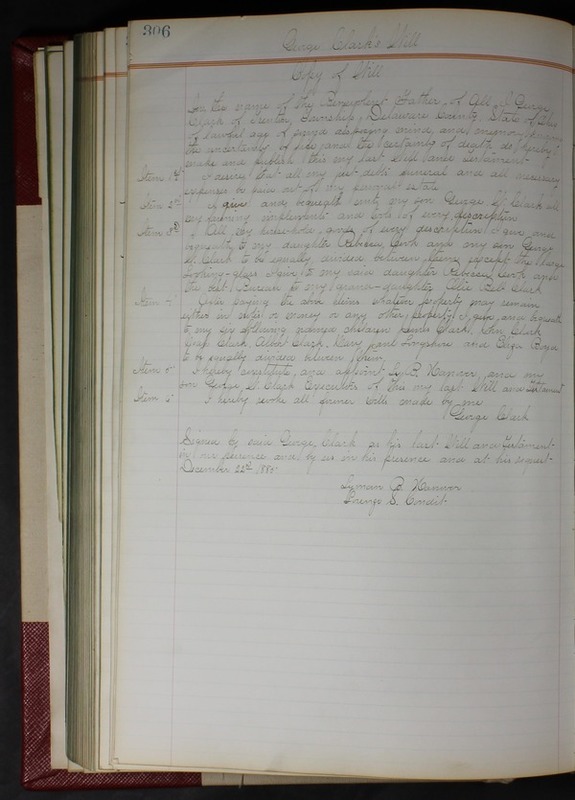 306
George Clark's Will
Copy of Will
In the name of the Benevolent Father of All I George
Clark of Trenton Township, Delaware County State of Ohio
of lawful age of sound disposing mind and memory
the uncertainty of life and the certainty of death do hereby
make and publish this my last Will and Testament
Item 1st I desire that all my just debts funeral and all necessary
expenses be paid out of my personal estate
Item 2nd I give and bequeath unto my son George S. Clark all
my farming implements and tools of every description
Item 3rd All my house-hold goods of every description I give and
bequeath to my daughter Rebecca Cook and my son George
S. Clark to be equally divided between them except the large
looking-glass I give to my said daughter Rebecca Cook and
the best Bureau to my grand-daughter Clark
Item After paying the above items whatever property may remain
either in notes or money or any other property I give and bequeath
to my six following named children James Clark, John Clark
Clark, Albert Clark, Mary Longshore and Eliza
to be equally divided between them
Item I hereby constitute and appoint L. B. Hanover and my
son George S. Clark Executors of this my last Will and Testament
Item I hereby revoke all former Wills made by me
George Clark
Signed by said George Clark as his last Will and Testament
in our presence and by us in his presence and at his request
December 22nd
Lyman B. Hanover
Lorenzo S. Condit